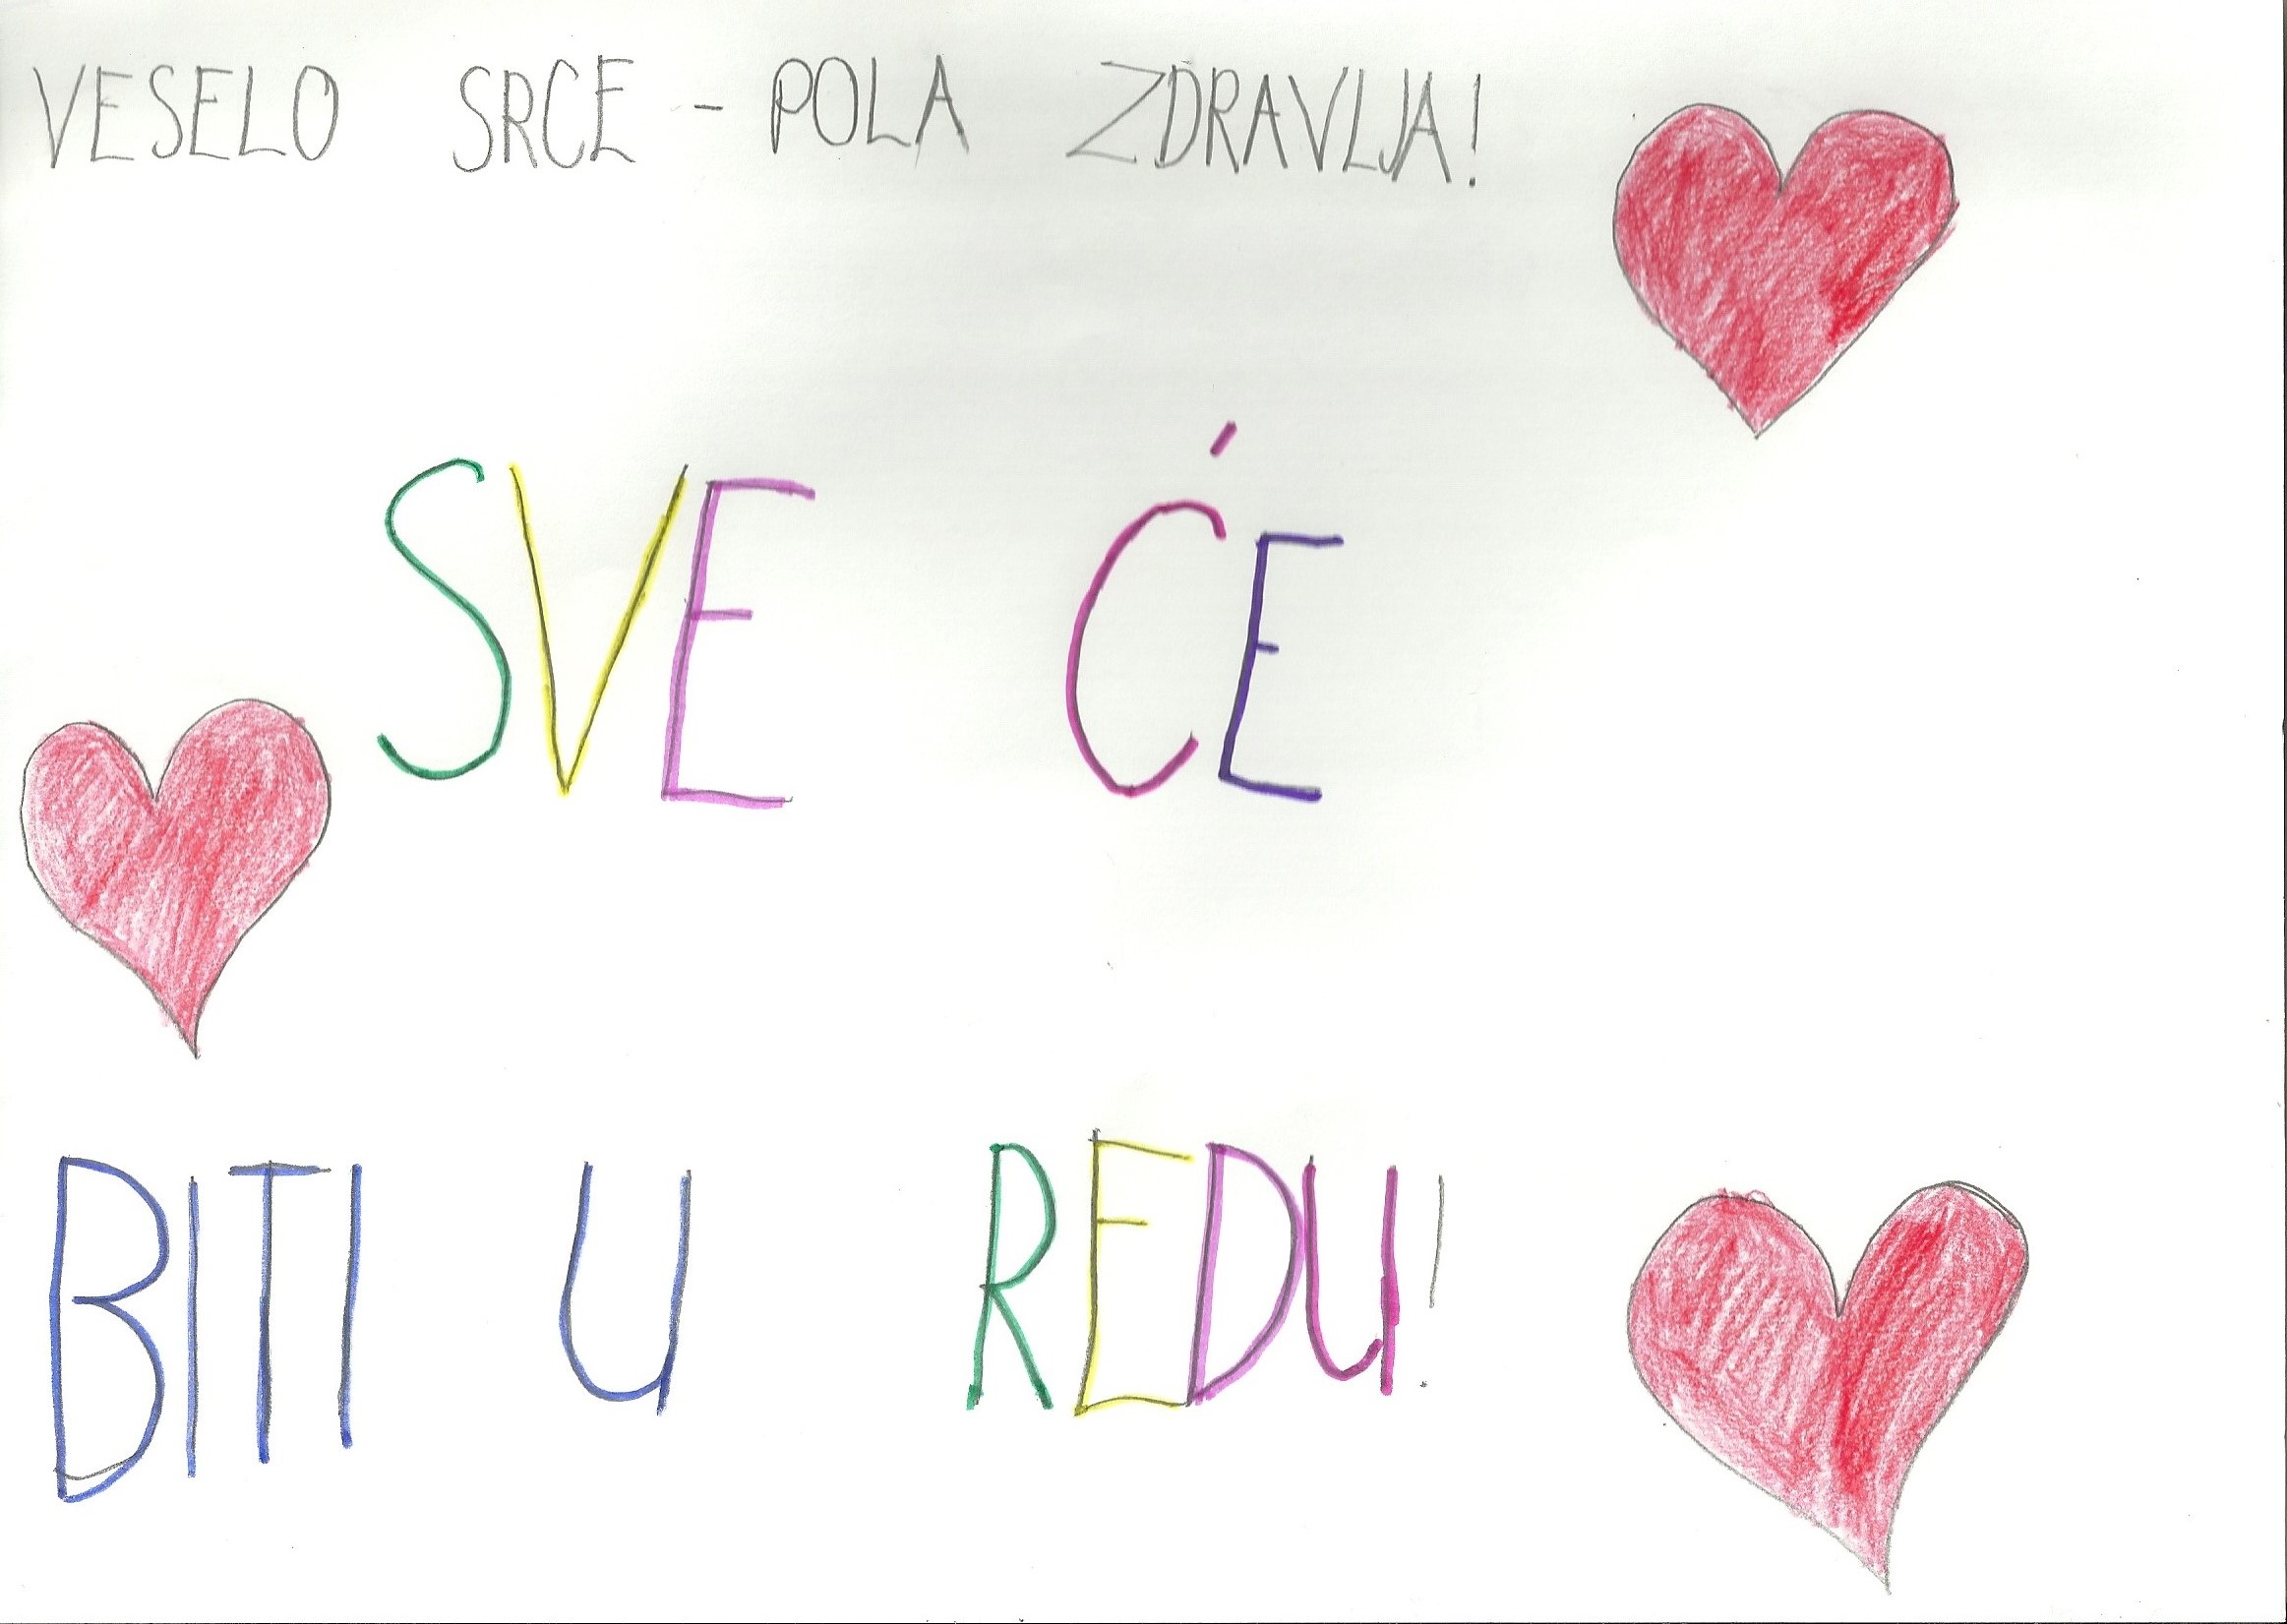 VESELO SRCE - POLA ZDRAVLJA!
SVE ĆE
BITI U REDU!